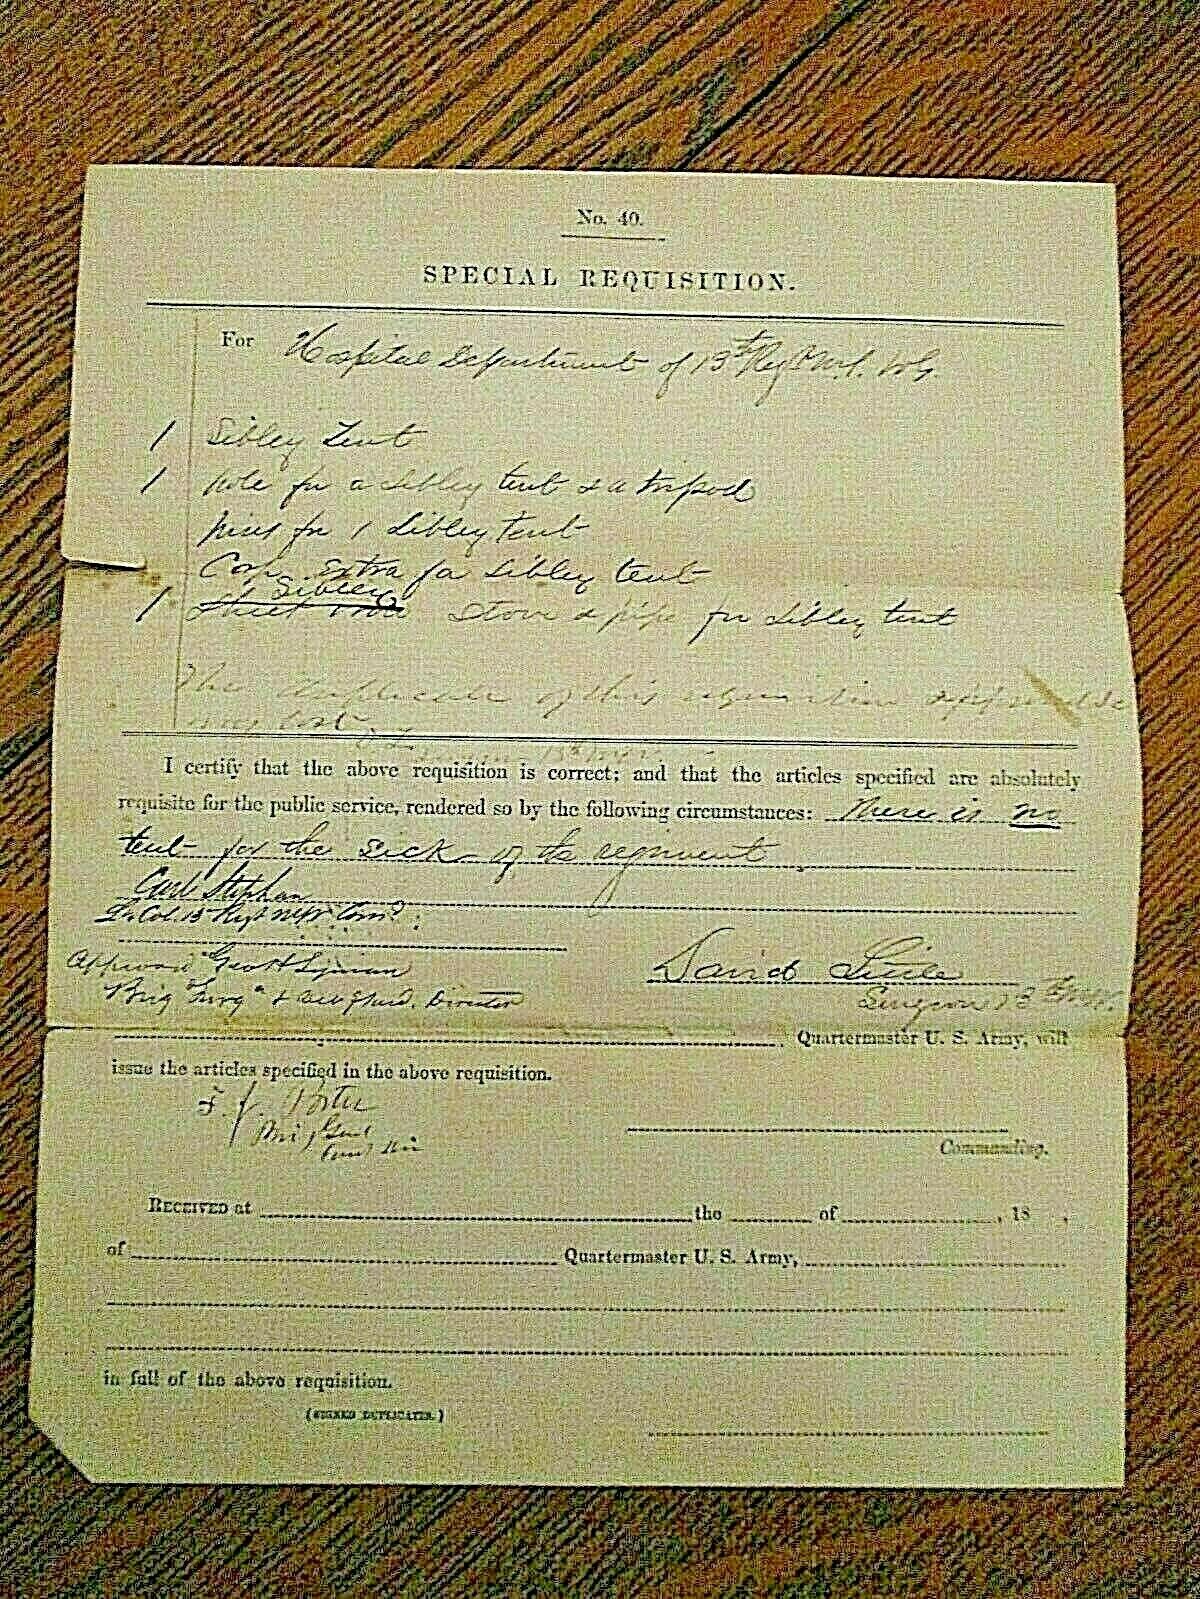 No. 40.
SPECIAL REQUISITION.
For Hospital Department of 13th Regt
1 Sibley Tent
1 pole for a Sibley tent & a tripod
pins for 1 Sibley Tent
Cap Extra for Sibley tent
Sibley
1 stove & pipe for Sibley tent
The duplicate of this requisition
I certify that the above requisition is correct; and that the articles specified are absolutely
requisite for the public service, rendered so by the following circumstances: There is no
tent for the sick of the regiment
Carl Stephan
Lt Col. 13 Regt
Approved Geo H Lyman
Brig Surgn & Director
David Little
Surgeon 13th
Quartermaster U. S. Army, will
issue the articles specified in the above requisition.
F. J. Porter
Commanding.
RECEIVED at the of , 18 ,
of Quartermaster U. S. Army,
in full of the above requisition.
(SIGNED DUPLICATES.)